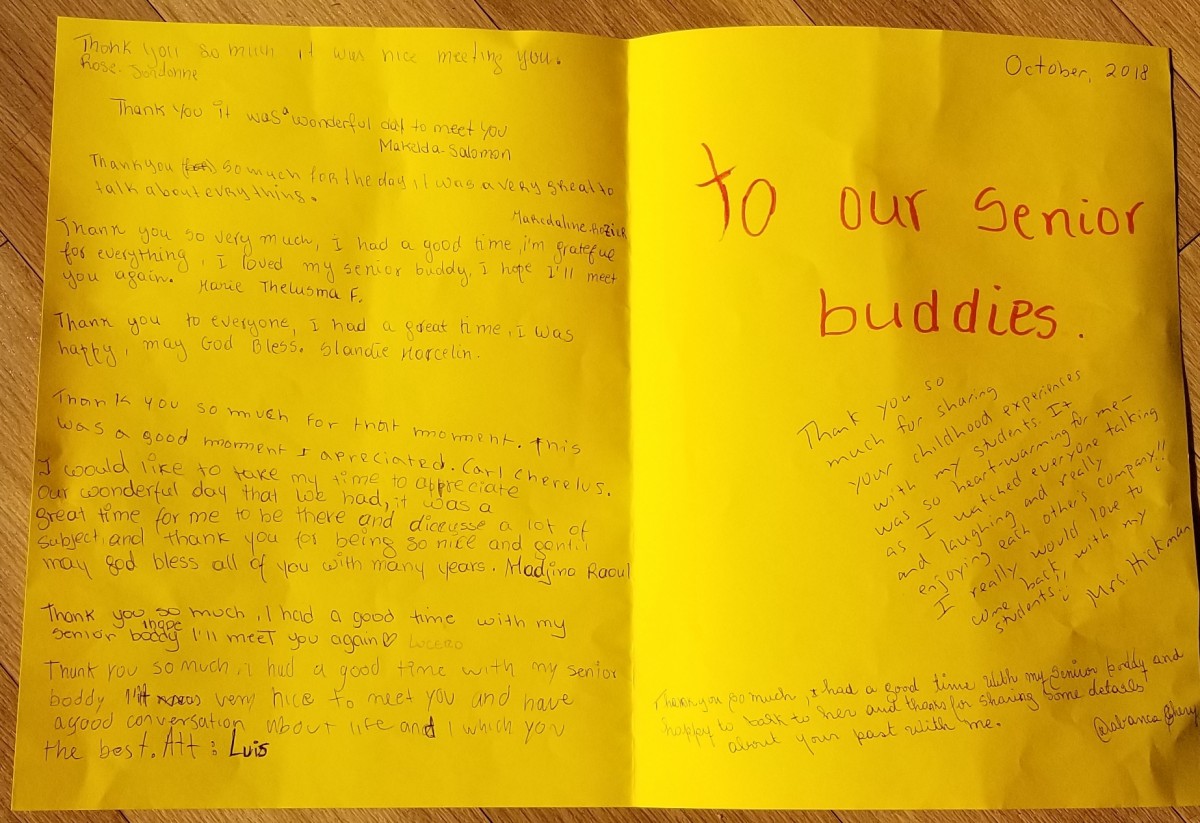 Thank you so much it was nice meeting you.
Rose. Jordonne
Thank you it was a wonderful day to meet you
Makelda-Salomon
Thankyou (for) so much for the day, it was a very great to
talk about everything.
Magedaline.Rozier
Thank you so very much, I had a good time, i'm grateful
for everything, I loved my senior buddy, I hope I'll meet
you again. Marie Thelusma F.
Thank you to everyone, I had a great time. I was
happy, may God Bless. Slandie Horcelin.
Thank you so much for that moment. This
was a good moment I apreciated. Carl Cherelus.
I would like to take my time to appreciate
our wonderful day that we had, it was a
great time for me to be there and dicusse a lot of
subject, and thank you for being so nice and gentil
may god bless all of you with many years. Madjina Raoul
Thank you so much, I had a good time with my
senior boddy I hope I'll meet you again♡ Lucero
Thunk you so much, i had a good time with my senior
boddy It was very nice to meet you and have
a good conversation about life and I which you
the best. Att : Luis
October, 2018
To our senior
buddies.
Thank you so
much for sharing
your childhood experienses
with my students. It
was so heart-warming for me—
as I watched everyone talking
and laughing and really
enjoying each other's company!!
I really would love to
come back with my
students! Mrs. Hickman
Thank you so much, I had a good time with my senior boddy and
happy to talk to her and thanks for sharing some detaset
about your past with me.